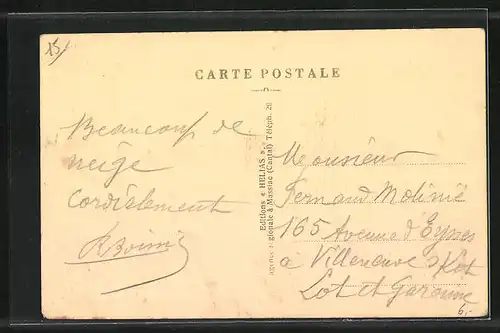 15/
CARTE POSTALE
Beaucoup de
neige
Cordialement
Editions « HELIAS »
agence régionale à Massiac (Cantal) Téléph. 29
Monsieur
Fernand Molinié
165 Avenue d'Eysses
à Villeneuve s/Lot
Lot et Garonne
6.-